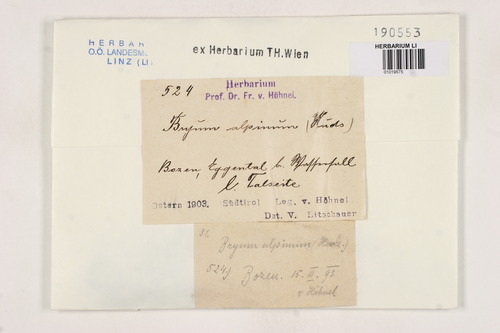 190553
HERBAR
O.Ö. LANDESM
LINZ (LI
ex Herbarium TH.Wien
HERBARIUM LI
01019575
524
Herbarium
Prof. Dr. Fr. v. Höhnel.
Bryum alpinum (Huds)
Bozen, Eggental b. Wasserfall
l. Talseite
Ostern 1903. Südtirol Leg. v. Höhnel
Det. V. Litschauer
Bryum alpinum (Huds.)
524) Bozen. 15. III. 03
v Höhnel